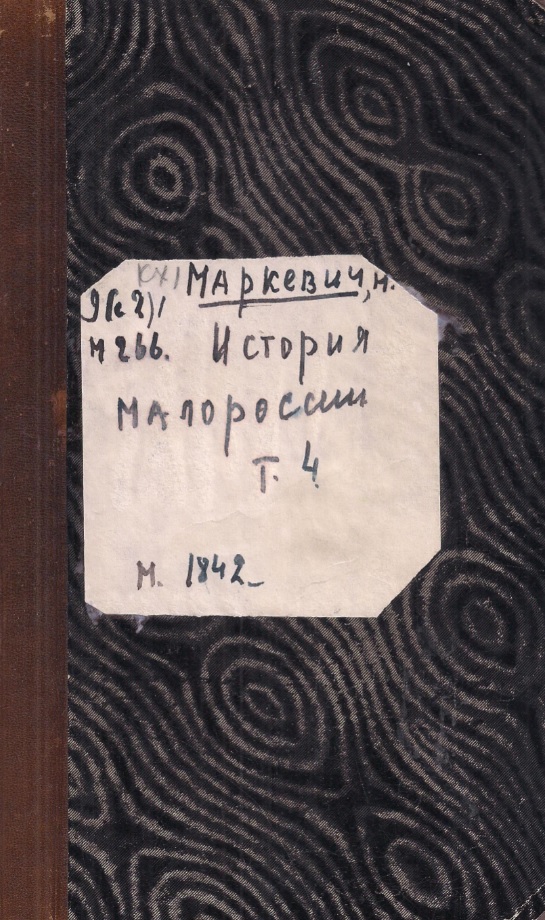 XXI Маркевич, Н.
9(с2)1
М266. История
Малороссии
Т. 4
М. 1842